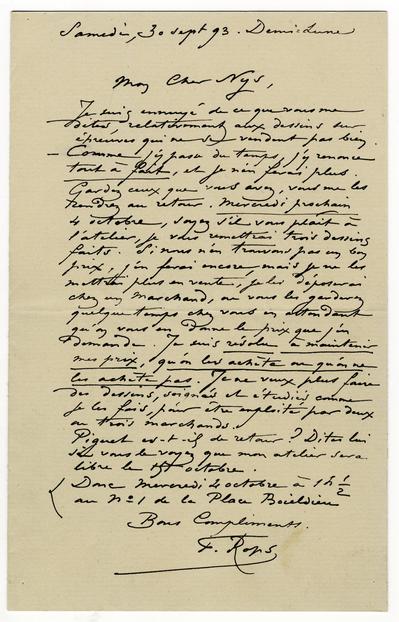 Samedi, 30 sept 93. Demi-Lune
Mon Cher Nys,
Je suis ennuyé de ce que vous me
dites, relativement aux dessins sur
épreuves qui ne se vendent pas bien.
– Comme j'y passe du temps, j'y renonce
tout à fait, et je n'en ferai plus.
Gardez ceux que vous avez, vous me les
rendrez au retour. Mercredi prochain
4 octobre, soyez s'il vous plaît à
l'atelier, je vous remettrai trois dessins
faits. Si nous n'en trouvons pas un bon
prix, j'en ferai encore, mais je ne les
mettrai plus en vente, je les déposerai
chez un marchand, ou vous les garderez
quelque temps chez vous en attendant
qu'on vous en donne le prix que j'en
demande. Je suis résolu à maintenir
mes prix, qu'on les achète ou qu'on ne
les achète pas. Je ne veux plus faire
des dessins, soignés et étudiés comme
je les fais, pour être exploité par deux
ou trois marchands.
Piquet est-il de retour? Dites lui
si vous le voyez que mon atelier sera
libre le octobre.
Donc Mercredi 4 octobre à 1h 1/2
au No 1 de la Place Boieldieu
Bons Compliments.
F. Rops